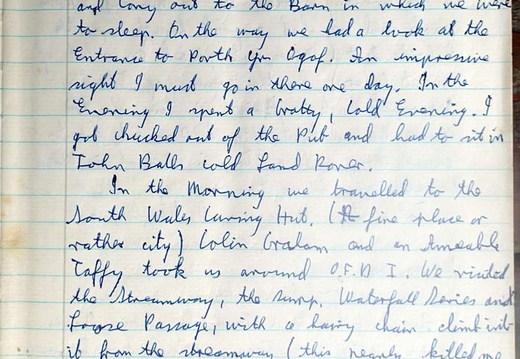 and Tony out to the Barn in which we were
to sleep. On the way we had a look at the
Entrance to Porth Yr Ogof. An impressive
sight I must go in there one day. In the
Evening I spent a Grotty, Cold Evening. I
got chucked out of the Pub and had to sit in
John Balls cold Land Rover.
In the Morning we travelled to the
South Wales Caving Hut. (A fine place or
rather city) Colin Graham and an Amiable
Taffy took us around O.F.D I. We visited
the Streamway, the sump, Waterfall Series and
Loose Passage, with a hairy chain climb into
it from the streamway (this nearly killed me